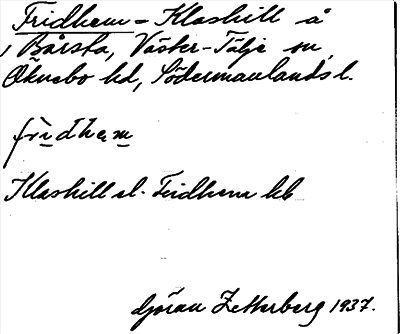 Fridhem = Klashill å
Bårsta, Väster-Tälje sn,
Öknebo hd, Södermanlands l.
fridhem
Klashill el. Fridhem kb
Göran Zetterberg 1937.